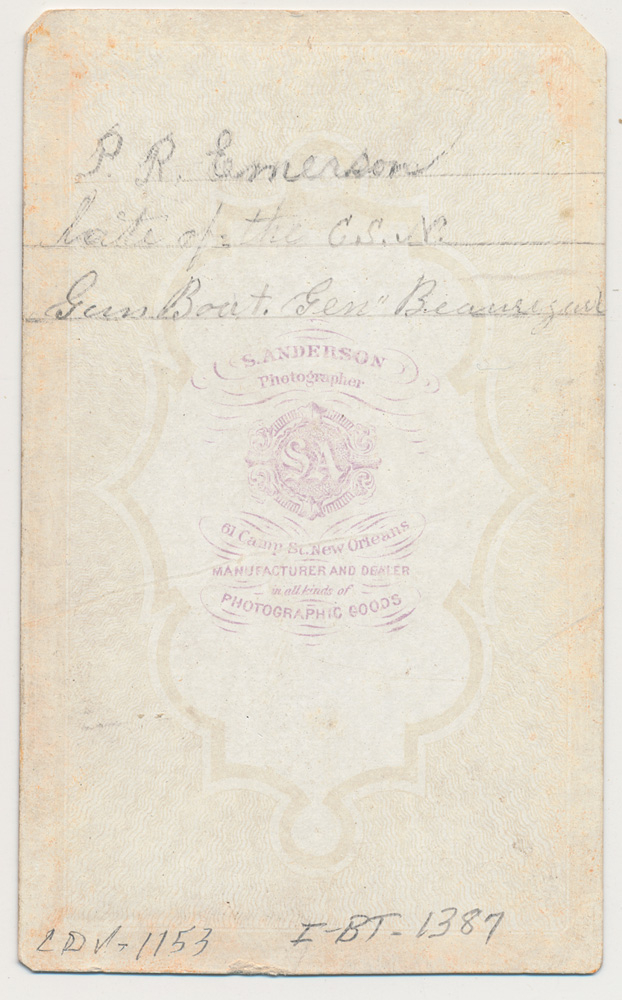 P. R. Emerson
Late of the C.S.N.
Gun Boat. Gen" Beauregard
S. ANDERSON
Photographer
SA
61 Camp St. New Orleans
MANUFACTURER AND DEALER
in all kinds of
PHOTOGRAPHIC GOODS
CDV-1153
I-BT-1387